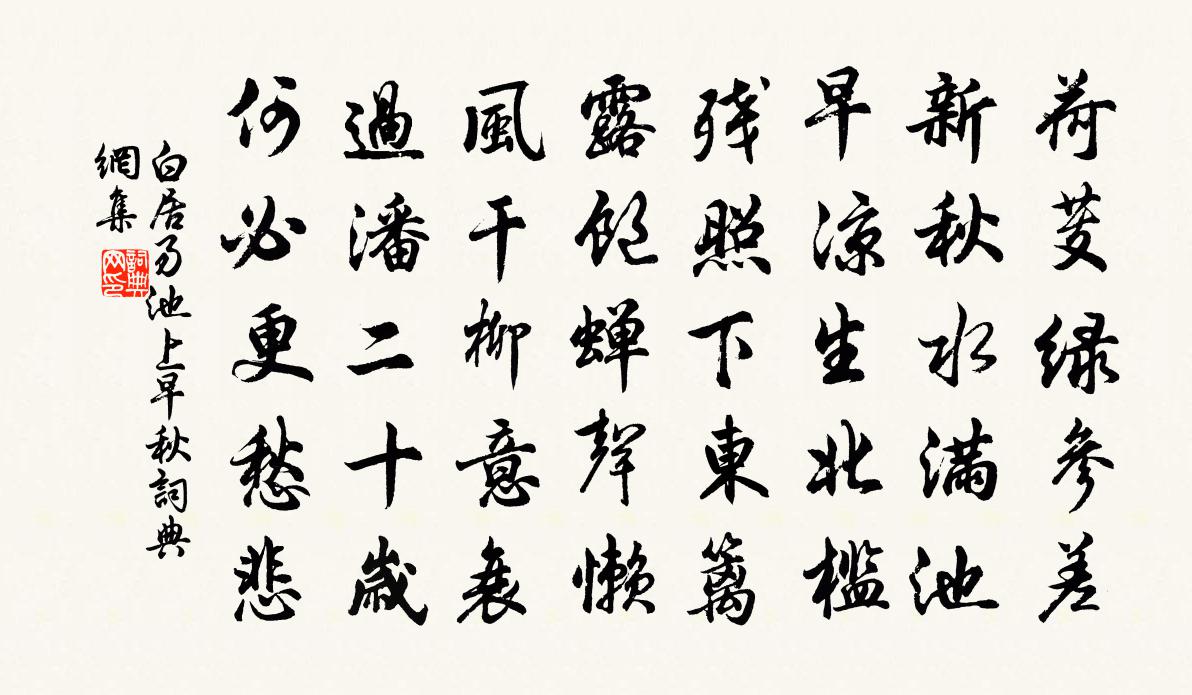 荷芰緑參差
新秋水滿池
早涼生北檻
残照下東籬
露飽蝉聲懶
風干柳意衰
過潘二十歲
何必更愁悲
白居易池上早秋詞典
網集
詞典网印